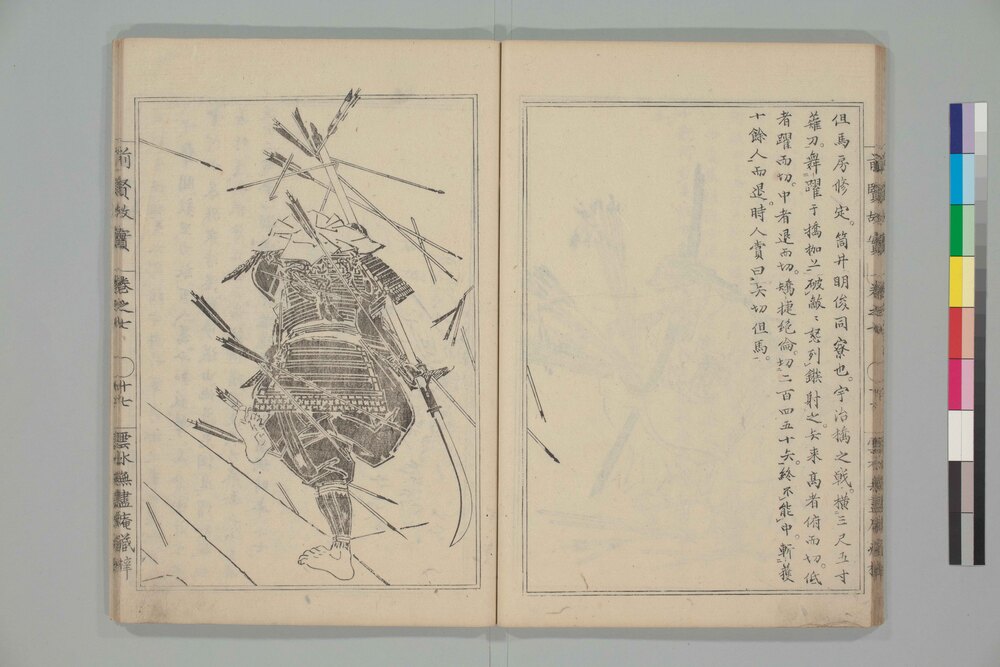 但馬房修定。筒井明俊同寮也。宇治橋之戰。橫三尺五寸
薙刀。舞躍于橋枷上。破敵〻怒列鏃射之矢来高者俯而切。低
者躍而切。中者退而切。矯捷絶倫。切二百四五十矢。終不能中。斬獲
十餘人而退。時人賞曰矢切但馬。
前賢故實
卷之七
十七
雲水無盡庵藏梓